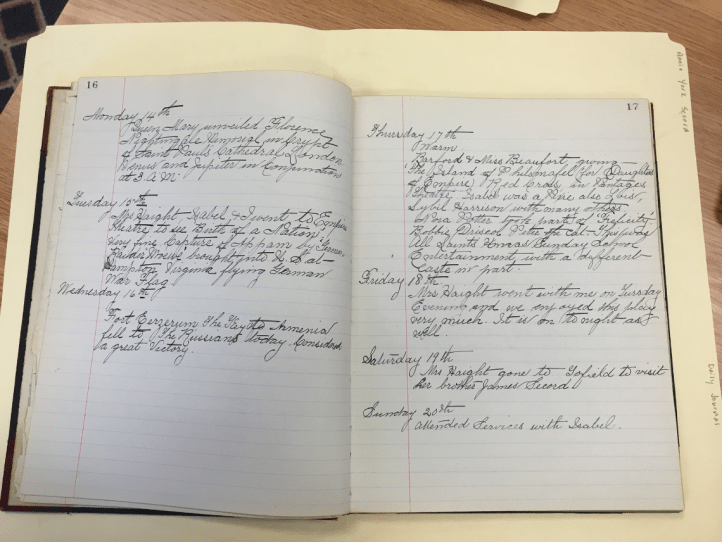 16
Monday 14th
Queen Mary unveiled Florence
Nightingale Memorial in Crypt
of Saint Pauls Cathedral, London
Venus and Jupiter in Conjunction
at 3. A.M.
Tuesday 15th
Mrs Haight Isabel & I went to Empire
theatre to see Birth of a Nation
Very fine Capture of Appam by German
Raider Moewe brought into U.S. at
Hampton, Virginia flying German
War Flag
Wednesday 16th
Fort Erzerum The Key to Armenia
fell to The Russians today. Considered
a great Victory.
17
Thursday 17th
Warm
Barford & Miss Beaufort, giving
The Island of for Daughters
of Empire, Red Cross, in Pantages
Theatre Isabel was a also Lois,
Sybil Harrison with many others
Nora Potter took part of Felicity
Bobbie Driscol Peter the Cat
All Saints Xmas Sunday School
Entertainment, with a different
Caste in part.
Friday 18th
Mrs Haight went with me on Tuesday
Evening and we enjoyed this play
very much. It is on to night as
well.
Saturday 19th
Mrs Haight gone to Tofield to visit
her brother James Secord
Sunday 20th
attended Services with Isabel.
Annie York Secord
Daily Journal